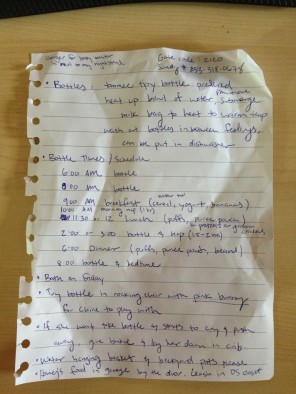 Gate code: 2120
• Bottles: tomee tippy bottle preferred
heat up bowl of water, submerge
milk bag to heat to warm temp
wash out bottles in between feedings,
can be put in dishwasher
• Bottle Times / Schedule
6:00 AM bottle
8:00 AM bottle
9:00 AM breakfast (cereal, yogurt, bananas)
10:00 AM morning nap (1 hr)
11:30 or 12 Lunch (puffs, puree pouch)
2:00 or 3:00 bottle & nap
6:00 Dinner (puffs, puree pouch, bread)
8:00 bottle & bedtime
• Bath on Friday
• Try bottle in rocking chair with pink bunny
for Claire to play with
• If she won't take bottle & starts to cry & push
away, give bottle & lay her down in crib
• Water hanging basket & backyard pots please
food in garage by the door. Leash in DS closet